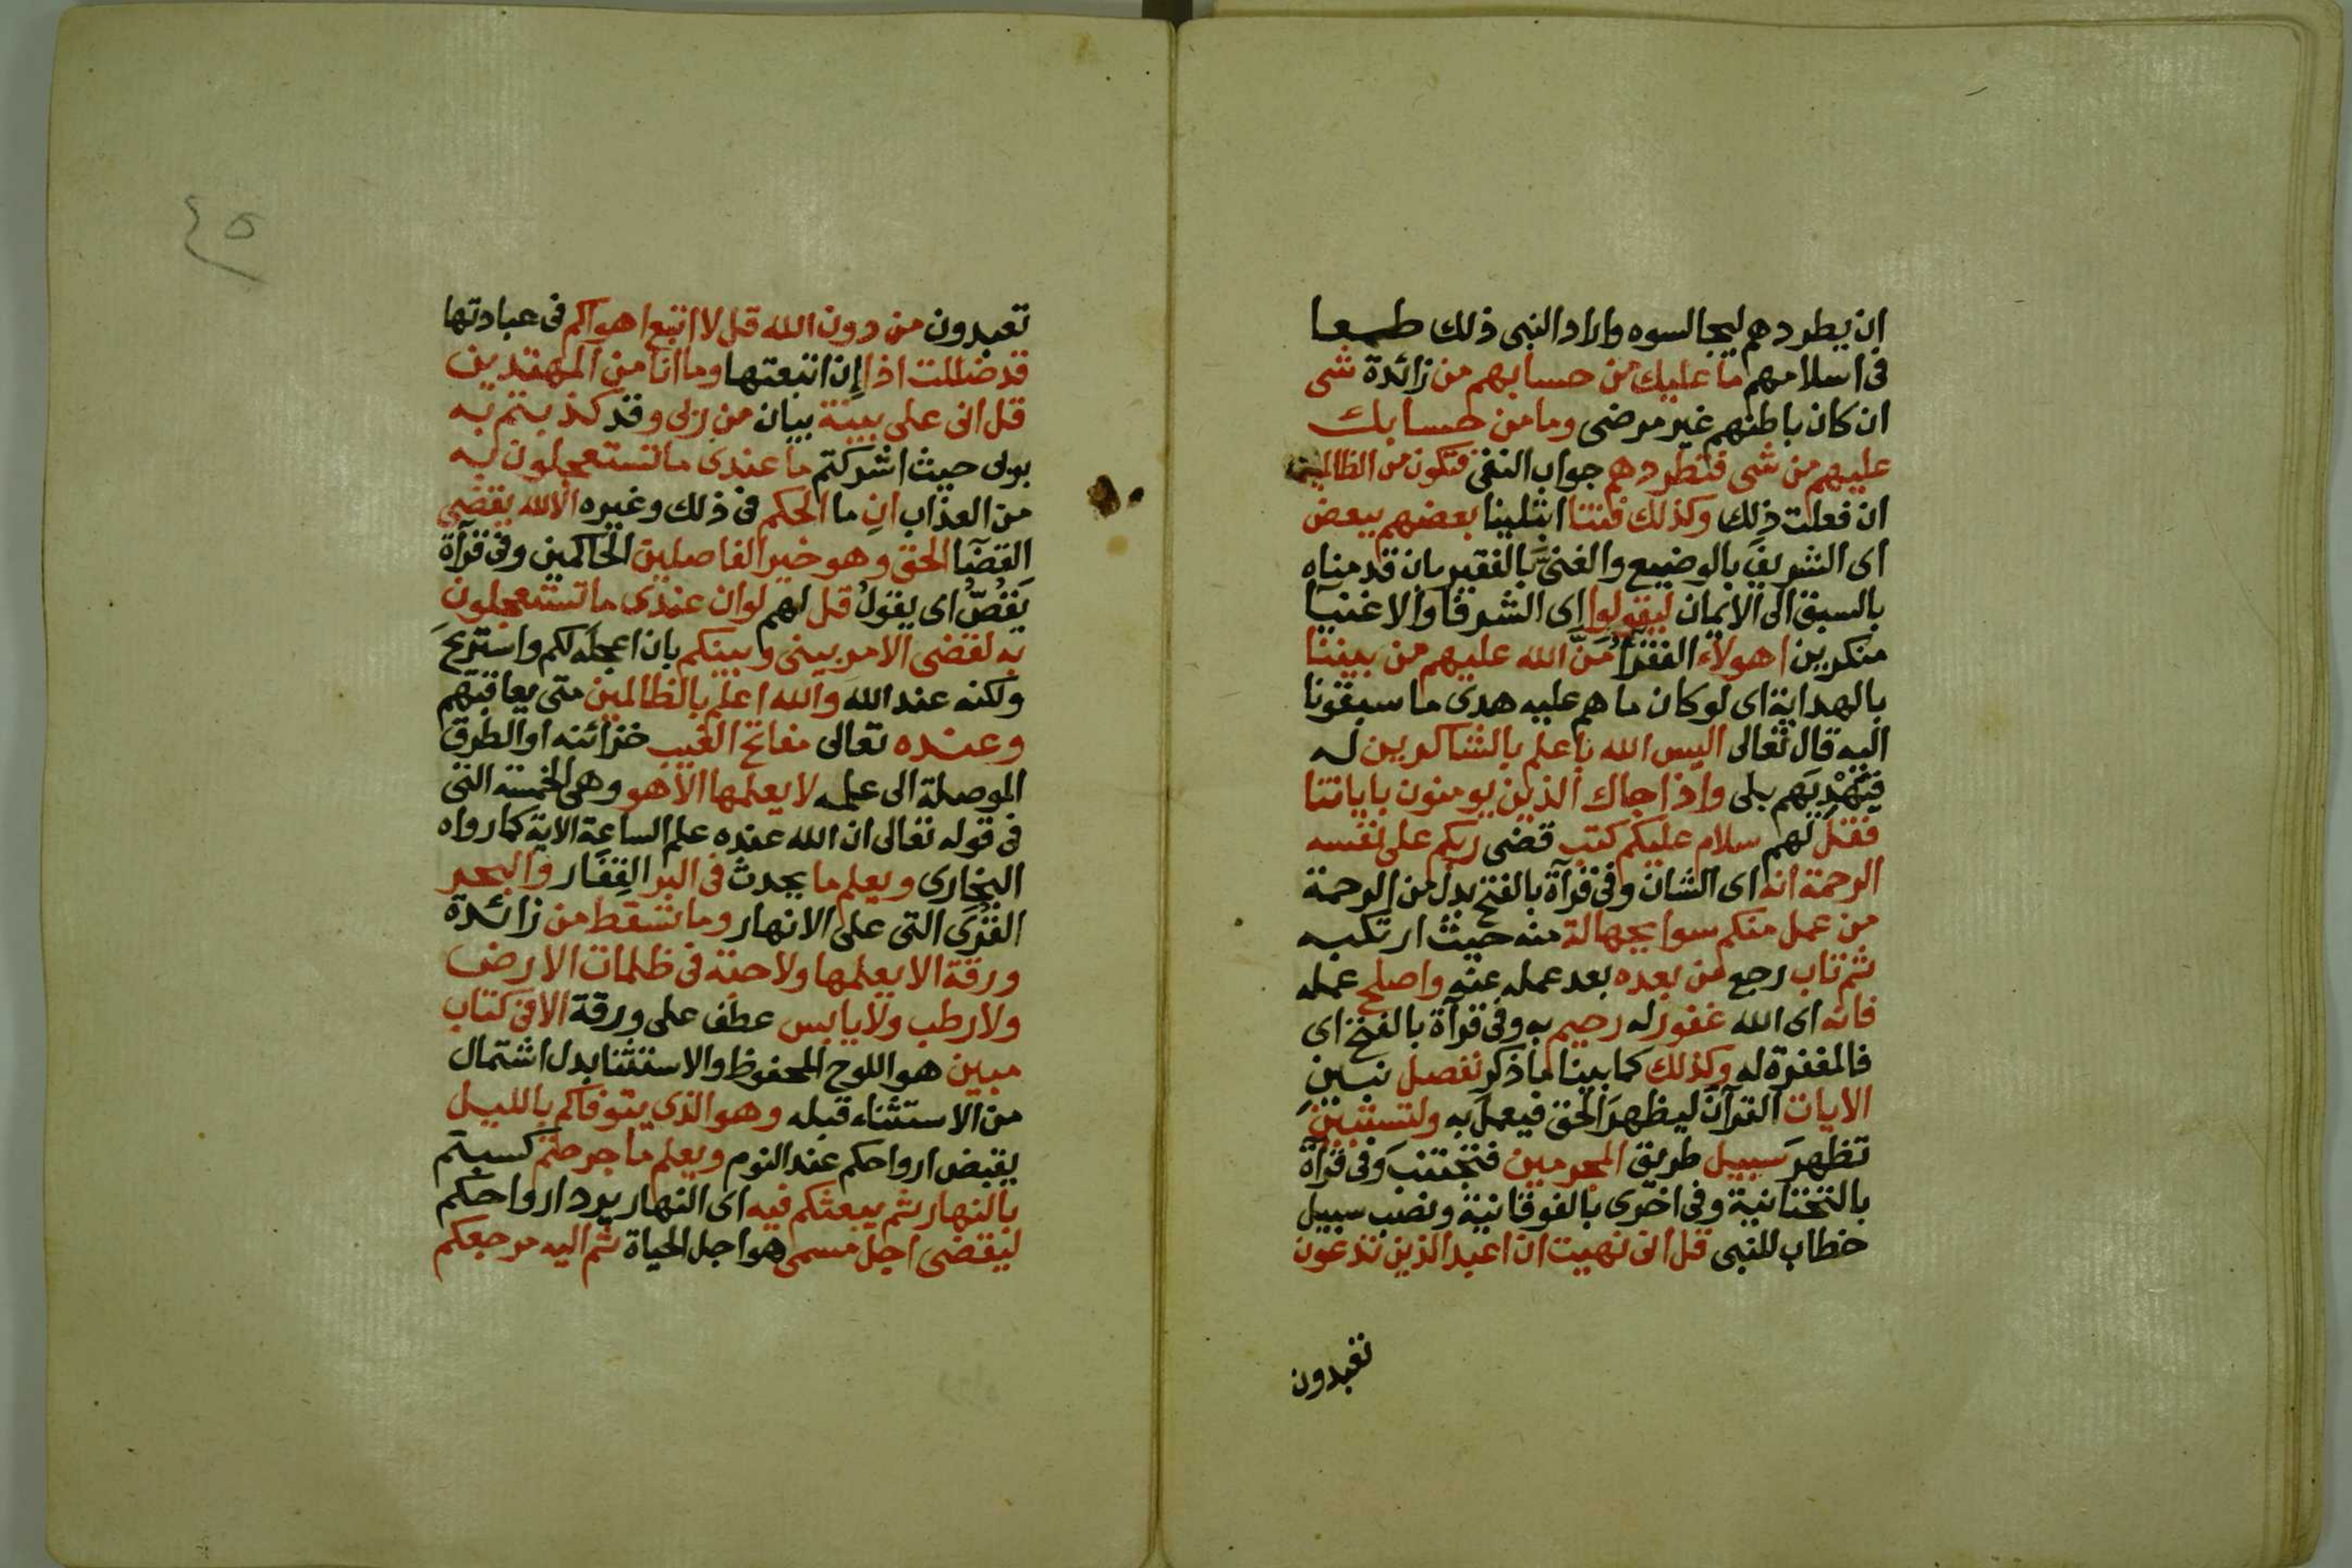 ان يطردهم ليجالسوه واراد النبى ذلك طمعا
فى اسلامهم ما عليك من حسابهم من زائدة شى
ان كان باطنهم غير مرضى وما من حسابك
عليهم من شى فتطردهم جواب النفى فتكون من الظالمين
ان فعلت ذلك وكذلك فتنا ابتلينا بعضهم ببعض
اى الشريف بالوضيع والغنىَّ بالفقير بان قدمناه
بالسبق الى الايمان ليقولوا اى الشرفا والاغنيا
منكرين اهولاء الفقرآُ مَنَّ الله عليهم من بيننا
بالهداية اى لو كان ما هم عليه هدى ما سبقونا
اليه قال تعالى اليس الله باعلم بالشاكرين له
فيَهْدِيَهم بلى واذا جاك الذين يومنون باياتنا
فقل لهم سلام عليكم كتب قضى ربكم على نفسه
الرحمة انه اى الشان وفى قرآة بالفتح بدل من الرحمة
من عمل منكم سوا بجهالة منه حيث ارتكبه
ثم تاب رجع من بعده بعد عمله عنه واصلح عمله
فانه اى الله غفور له رحيم به وفى قرآة بالفتح اى
فالمغفرة له وكذلك كما بينا ما ذكر نفصل نبين
الايات القرآن ليظهرَ الحق فيعمل به ولتستبينَ
تظهرَ سبيل طريق المجرمين فتجتنبَ وفى قرآة
بالتحتانية وفى اخرى بالفوقانية ونصب سبيل
خطاب للنبى قل انى نهيت ان اعبد الذين تدعون
تعبدون
٤٥
تعبدون من دون الله قل لا اتبع اهواكم فى عبادتها
قد ضللت اذا إِن اتبعتها وما انا من المهتدين
قل انى على بينة بيان من ربى وقد كذبتم به
بربى حيث اشركتم ما عندى ما تستعجلون به
من العذاب انِ ما الحكم فى ذلك وغيره الا لله يقضى
القضآ الحق وهو خير الفاصلين الحاكمين وفى قرآة
يَقُصُّ اى يقولُ قل لهم لو ان عندى ما تستعجلون
به لقضى الامر بينى وبينكم بان اعجله لكم واستريحَ
ولكنه عند الله والله اعلم بالظالمين متى يعاقبهم
وعنده تعالى مفاتح الغيب خزائنه او الطرق
الموصلة الى علمه لا يعلمها الا هو وهى الخمسة التى
فى قوله تعالى ان الله عنده علم الساعة الاية كما رواه
البخارى ويعلم ما يحدث فى البر القِفَار والبحر
القُرَى التى على الانهار وما تسقط من زائدة
ورقة الا يعلمها ولا حبة فى ظلمات الارض
ولا رطب ولا يابس عطف على ورقة الا فى كتاب
مبين هو اللوح المحفوظ والاستثنا بدل اشتمال
من الاستثناء قبله وهو الذى يتوفاكم بالليل
يقبض ارواحكم عند النوم ويعلم ما جرحتم كسبتم
بالنهار ثم يبعثكم فيه اى النهار يرد ارواحكم
ليقضى اجل مسمى هو اجل الحياة ثم اليه مرجعكم